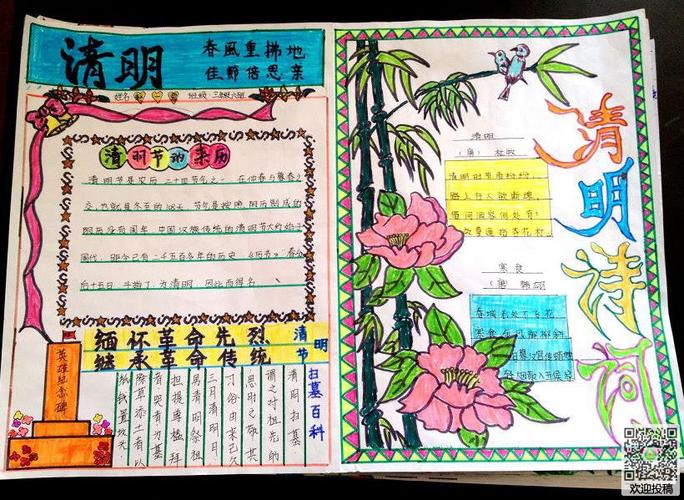 清明
春風重拂地
佳節倍思亲
班级:三年级六班
清明节的来历
清明节是农历二十四节气之一，在仲春与暮春之
交，也就是冬至后的108天。
中国汉族传统的清明节大约始于
周代，距今已有二千五百多年的历史，《历书》:春分
后十五日，斗指丁，为清明，因此而得名。
缅怀革命先烈
继承革命传统
清明节
英雄纪念碑
扫墓百科
清明扫墓
谓之对祖先的
思时之敬其
习俗由来已久
三月清明日
男清明祭祖
担提尊榼拜
者哭者为墓
除草添土者以
纸钱置坟头
清明诗词
清明
(唐)杜牧
清明时节雨纷纷，
路上行人欲断魂。
借问酒家何处有?
牧童遥指杏花村。
寒食
(唐)韩翃
春城无处不飞花
寒食东风御柳斜
日暮汉宫传蜡烛
轻烟散入五侯家
欢迎投稿